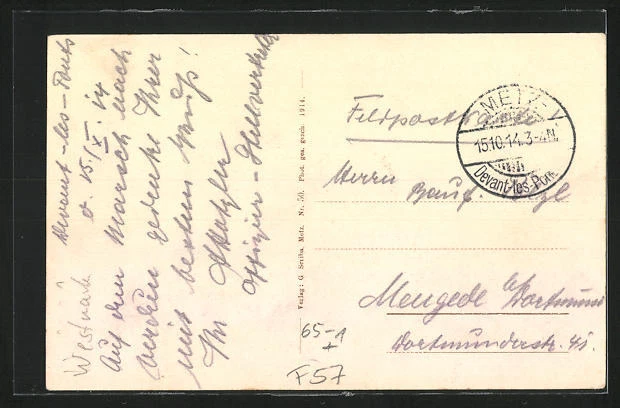 Devant-les-Ponts
d. 15. X. 14
Auf dem Marsch nach
Verdun gedenkt Ihrer
mit bestem Gruß!
Ihr
Offizier-Stellvertreter
Westwärts
Verlag: G Scriba, Metz. Nr. 50. Phot. ges. gesch. 1914.
Feldpostkarte
METZ-V
15.10.14.3-4N.
Devant-les-Pon.
Herrn
Mengede b/Dortmund
Dortmunderstr. 41.
65-1
F57